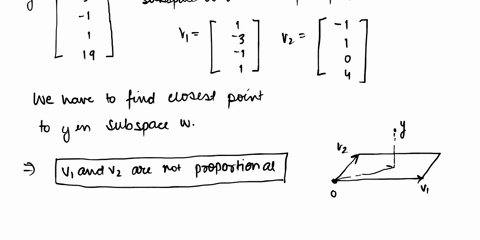 y
-1
1
19
v₁ = [1 -3 -1 1] v₂ = [-1 1 0 4]
We have to find closest point
to y in subspace W.
⇒ v₁ and v₂ are not proportional
y
v₂
0
v₁